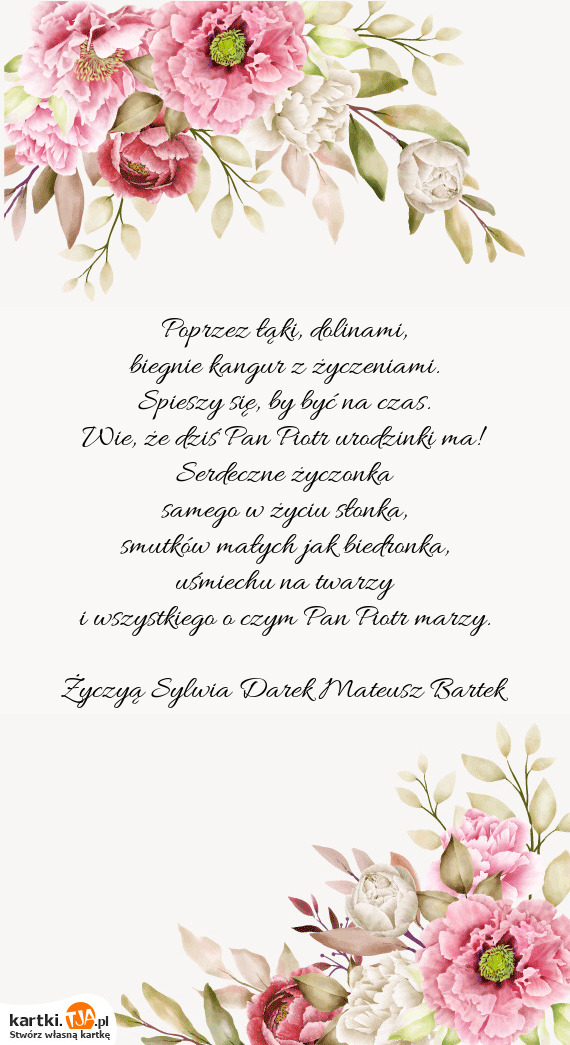 Poprzez łąki, dolinami,
biegnie kangur z życzeniami.
Spieszy się, by być na czas.
Wie, że dziś Pan Piotr urodzinki ma!
Serdeczne życzonka
samego w życiu słonka,
smutków małych jak biedronka,
uśmiechu na twarzy
i wszystkiego o czym Pan Piotr marzy.
Życzyą Sylwia Darek Mateusz Bartek
kartki.TJA.pl
Stwórz własną kartkę